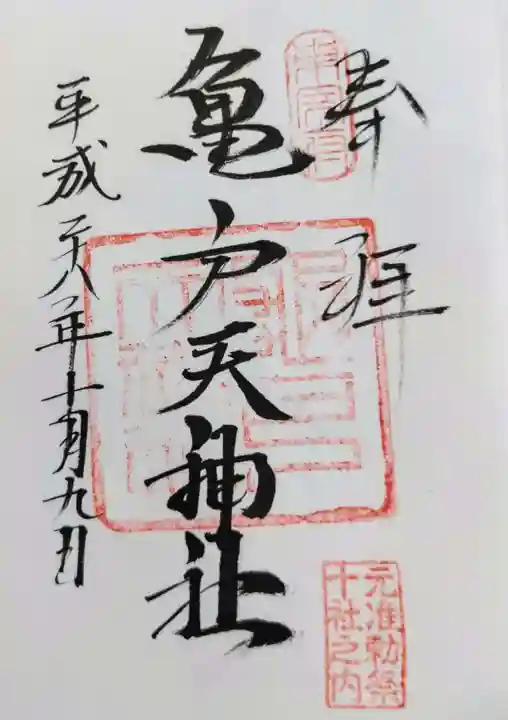 奉拝
亀戸天神社
平成二十八年十月九日
元准勅祭
十社之内